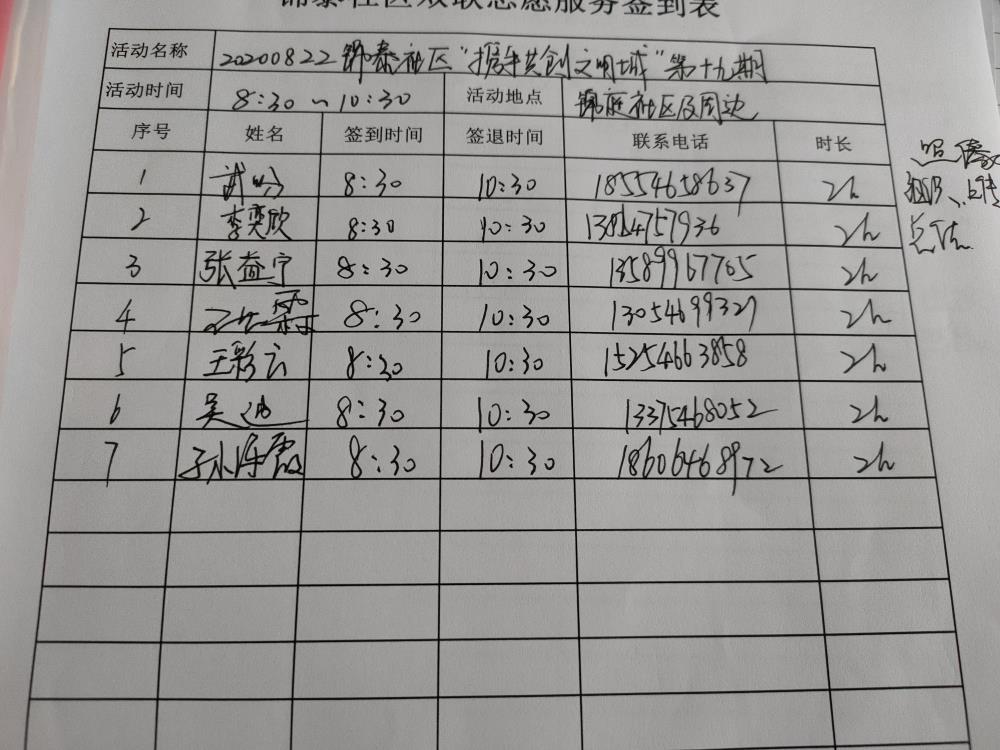 锦泰社区双联志愿服务签到表
活动名称 20200822锦泰社区“携手共创文明城”第十九期
活动时间 8:30~10:30 活动地点 锦庭社区及周边
序号 姓名 签到时间 签退时间 联系电话 时长
1 武 8:30 10:30 18554658637 2h
2 李奕欣 8:30 10:30 13864757936 2h
3 张益宁 8:30 10:30 13589967765 2h
4 8:30 10:30 13054699327 2h
5 王彩云 8:30 10:30 15254663858 2h
6 吴迪 8:30 10:30 13375468052 2h
7 孙海霞 8:30 10:30 18606468972 2h